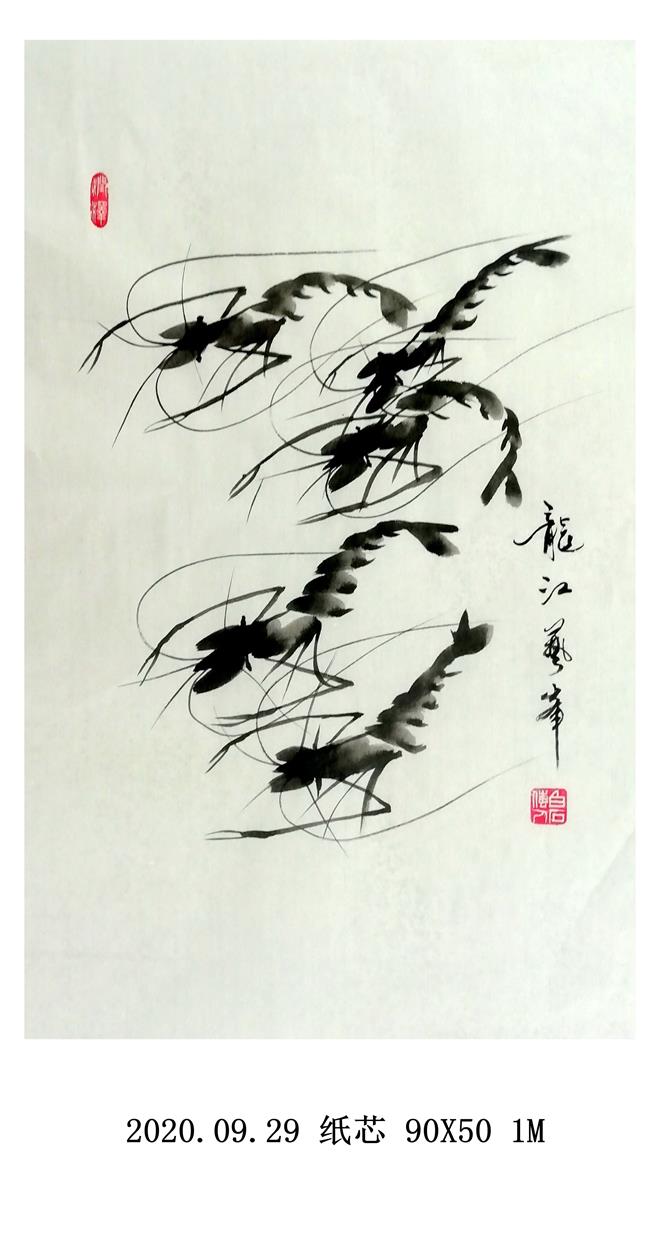 龍江藝峯
白石傳人
2020.09.29 纸芯 90X50 1M